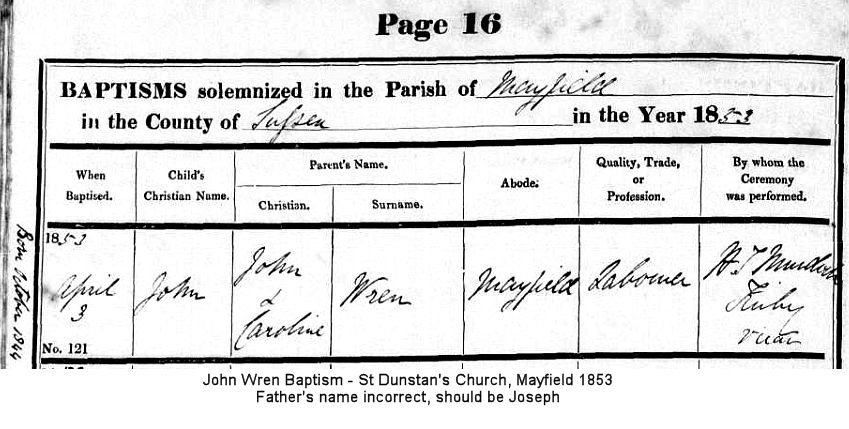 Page 16
BAPTISMS solemnized in the Parish of Mayfield
in the County of Sussex in the Year 1853
When Baptised.
Child's Christian Name.
Parent's Name.
Christian.
Surname.
Abode.
Quality, Trade, or Profession.
By whom the Ceremony was performed.
1853
April
3
No. 121
John
John
&
Caroline
Wren
Mayfield
Labourer
H T Murdoch
Kirby
Vicar
Born October 1844
John Wren Baptism - St Dunstan's Church, Mayfield 1853
Father's name incorrect, should be Joseph